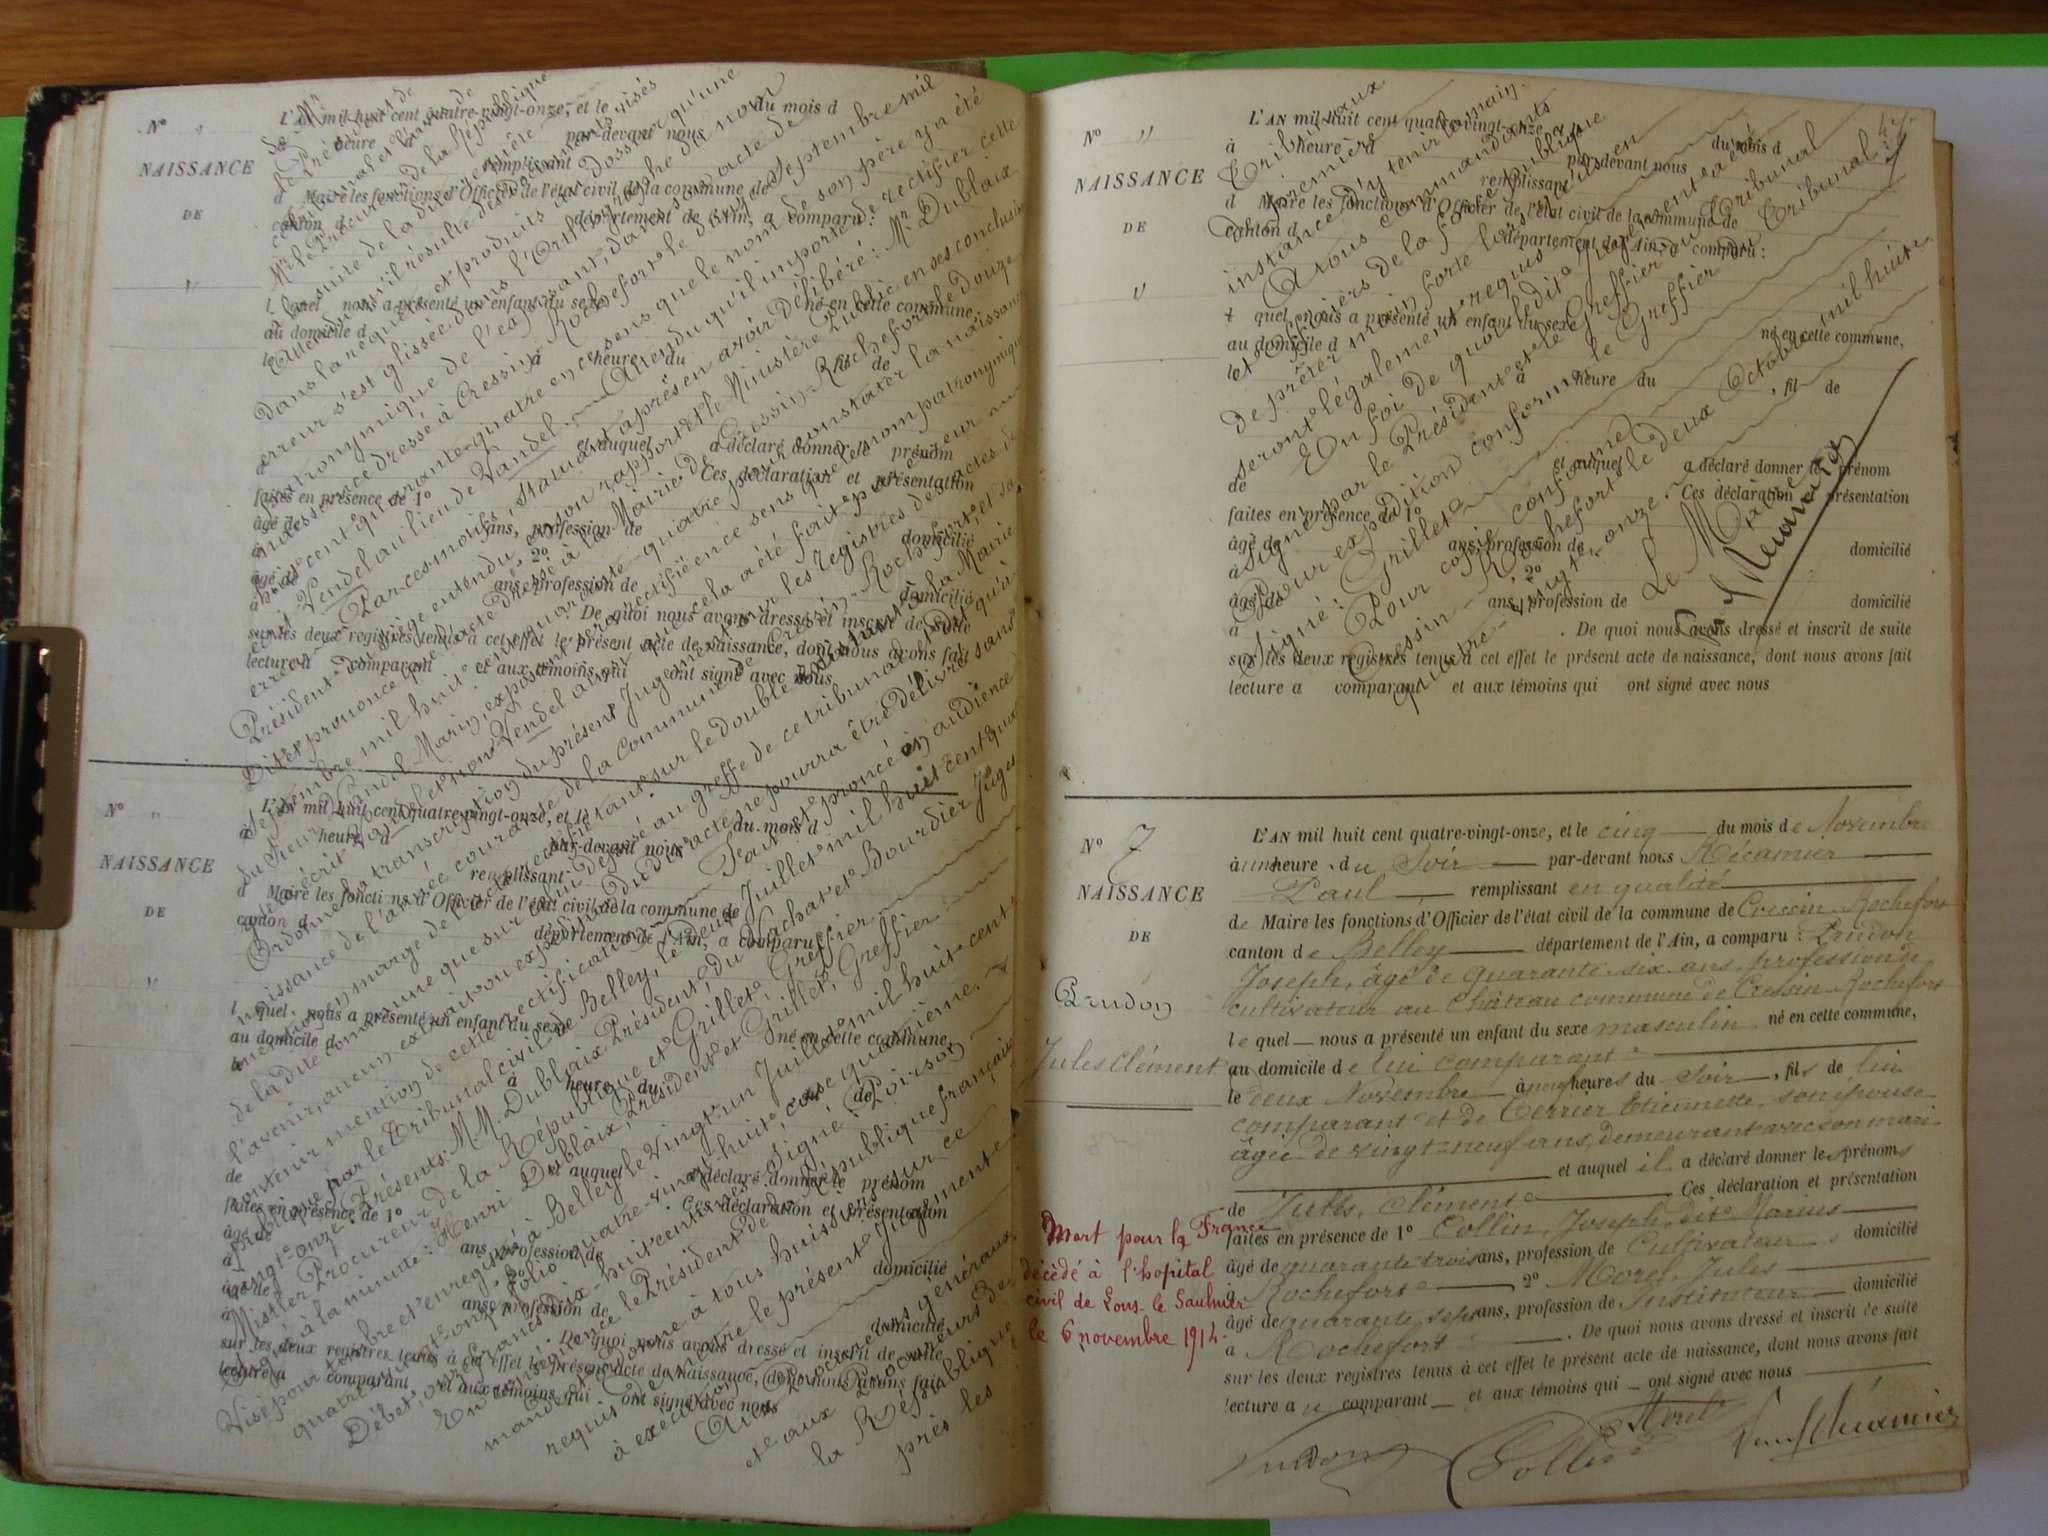 N° "
NAISSANCE
DE
"
L'AN mil huit cent quatre-vingt-onze, et le du mois d
à heure d par-devant nous
remplissant
d Maire les fonctions d'Officier de l'état civil de la commune de
canton d département de l'Ain, a comparu :
l quel nous a présenté un enfant du sexe né en cette commune,
au domicile d
le à heure du
de
et auquel a déclaré donner le prénom
Ces déclaration et présentation
faites en présence de 1°
âgé de ans, profession de domicilié
à 2°
âgé de ans, profession de domicilié
à . De quoi nous avons dressé et inscrit de suite
sur les deux registres tenus à cet effet le présent acte de naissance, dont nous avons fait
lecture a comparant et aux témoins qui ont signé avec nous
à la suite de la dite requête
Attendu qu'il résulte des
Dans la requête et produits au Dossier qu'une
erreur s'est glissée dans l'Orthographe du nom
patronymique de l'exposant, dans son acte de
naissance dressé à Cressin-Rochefort le Septembre mil
huit cent quarante-quatre en ce sens que le nom de son père y a été
écrit Vendel au lieu de Vandel. Attendu qu'il importe de rectifier cette
erreur. Par ces motifs, Statuant après en avoir Délibéré : Mr Dublaix
Président du siège entendu en son rapport et le Ministère Public en ses conclusions
Dit et prononce que l'acte dressé à la Mairie de Cressin-Rochefort le douze
Septembre mil huit cent quarante-quatre pour constater la naissance
du Sieur Vandel Marin, exposant, sera rectifié en ce sens que le nom patronymique
sera écrit Vandel et non Vendel ainsi que cela a été fait par erreur
Ordonne la transcription du présent Jugement sur les registres des actes de
naissance de l'année courante de la Commune de Cressin-Rochefort et sa
mention en marge de l'acte rectifié tant sur le double existant à la Mairie
de la dite commune que sur celui Déposé au greffe de ce tribunal, pour qu'à
l'avenir, aucun extrait ou expédition du dit acte ne pourra être délivré sans
contenir mention de cette rectification. Fait et prononcé en audience
publique par le Tribunal civil de Belley, le deux Juillet mil huit cent quatre
vingt-onze. Présents : M.M. Dublaix Président, du Vachat et Bourdier Juges
Mistler Procureur de la République et Grillet, Greffier
Signé à la minute : Henri Dublaix, Président et Grillet, Greffier
Visé pour timbre et enregistré à Belley le Vingt-un Juillet mil huit cent
quatre-vingt-onze, folio quatre-vingt-huit, case quatrième.
Débet, onze francs dix-huit centimes. Signé : Poirson
En conséquence le Président de la République français
mande et ordonne à tous huissiers sur ce
requis de mettre le présent Jugement
à exécution, aux Procureurs généraux
et aux Procureurs de
la République
près les
N° "
NAISSANCE
DE
"
L'AN mil huit cent quatre-vingt-onze, et le du mois d
à heure d par-devant nous
remplissant
d Maire les fonctions d'Officier de l'état civil de la commune de
canton d département de l'Ain, a comparu :
l quel nous a présenté un enfant du sexe né en cette commune,
au domicile d
le à heure du
de
et auquel a déclaré donner le prénom
Ces déclaration et présentation
faites en présence de 1°
âgé de ans, profession de domicilié
à 2°
âgé de ans, profession de domicilié
à . De quoi nous avons dressé et inscrit de suite
sur les deux registres tenus à cet effet le présent acte de naissance, dont nous avons fait
lecture a comparant et aux témoins qui ont signé avec nous
N° "
NAISSANCE
DE
"
L'AN mil huit cent quatre-vingt-onze, du mois d
à heure d par-devant nous
remplissant
d Maire les fonctions d'Officier de l'état civil de la commune de
canton d département de l'Ain, a comparu :
l quel nous a présenté un enfant du sexe né en cette commune,
au domicile d
le à heure du , fil de
et auquel a déclaré donner le prénom
de Ces déclaration présentation
faites en présence de 1°
âgé de ans, profession de domicilié
à 2°
âgé de ans, profession de domicilié
à . De quoi nous avons dressé et inscrit de suite
sur les deux registres tenus à cet effet le présent acte de naissance, dont nous avons fait
lecture a comparant et aux témoins qui ont signé avec nous
Tribunaux
de premières
instance d'y tenir la main.
A tous Commandants
et Officiers de la force publique
de prêter main forte lorsqu'ils en
seront légalement requis
En foi de quoi ledit Jugement a été
signé par le Président et le Greffier du Tribunal
Pour expédition conforme le Greffier du Tribunal :
Signé : Grillet
Pour copie conforme
Cressin-Rochefort le deux Octobre mil huit
quatre-vingt-onze.
Le Maire
N° 7
NAISSANCE
DE
Prudon
Jules Clément
Mort pour la France
décédé à l'hopital
civil de Lons-le Saulnier
le 6 novembre 1914.
L'AN mil huit cent quatre-vingt-onze, et le cinq du mois de Novembre
à une heure du Soir par-devant nous Récamier
Paul remplissant en qualité
de Maire les fonctions d'Officier de l'état civil de la commune de Cressin-Rochefort
canton de Belley département de l'Ain, a comparu : Prudon
Joseph, âgé de quarante-six ans, profession de
cultivateur au Château commune de Cressin-Rochefort
lequel nous a présenté un enfant du sexe masculin né en cette commune,
au domicile de lui comparant
le deux Novembre à neuf heures du Soir, fils de lui
comparant et de Terrier Etiennette, son épouse
âgée de vingt-neuf ans, demeurant avec son mari
et auquel il a déclaré donner les prénoms
de Jules, Clément Ces déclaration et présentation
faites en présence de 1° Collin, Joseph, dit Marius
âgé de quarante trois ans, profession de Cultivateur domicilié
à Rochefort 2° Morel, Jules
âgé de quarante sept ans, profession de Instituteur domicilié
à Rochefort . De quoi nous avons dressé et inscrit de suite
sur les deux registres tenus à cet effet le présent acte de naissance, dont nous avons fait
lecture au comparant et aux témoins qui ont signé avec nous
Prudon Collin Morel Paul Récamier